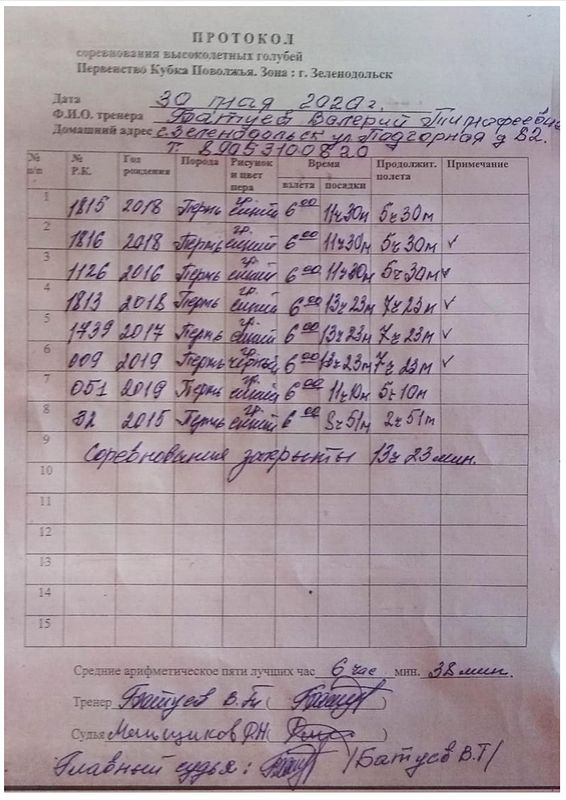 ПРОТОКОЛ
соревнования высоколетных голубей
Первенство Кубка Поволжья. Зона : г. Зеленодольск
Дата 30 мая 2020 г.
Ф.И.О. тренера Батуев Валерий Тимофеевич
Домашний адрес г. Зеленодольск ул Подгорная д 82.
Т. 89053100820
№ п/п № Р.К. Год рождения Порода Рисунок и цвет пера Время взлёта посадки Продолжит. полета Примечание
1 1815 2018 Пермь гр. синий 6 00 11ч 30м 5ч 30м
2 1816 2018 Пермь гр. синий 6 00 11ч 30м 5ч 30м ✓
3 1126 2016 Пермь гр. синий 6 00 11ч 30м 5ч 30м ✓
4 1813 2018 Пермь гр. синий 6 00 13ч 23м 7ч 23м ✓
5 1739 2017 Пермь гр. синий 6 00 13ч 23м 7ч 23м ✓
6 009 2019 Пермь гр. чёрный 6 00 13ч 23м 7ч 23м ✓
7 051 2019 Пермь гр. синий 6 00 11ч 10м 5ч 10м
8 32 2015 Пермь гр. синий 6 00 8ч 51м 2ч 51м
9 Соревнования закрыты 13ч 23 мин.
10
11
12
13
14
15
Средние арифметическое пяти лучших час 6 час мин. 38 мин.
Тренер Батуев В.Т. ( )
Судья Манщиков Р.Н ( )
Главный судья : /Батуев В.Т/